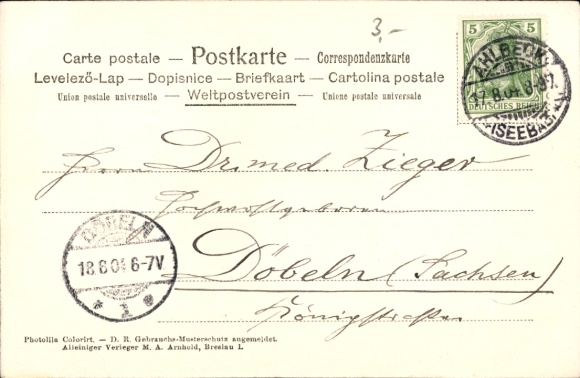 3,-
Carte postale — Postkarte — Correspondenzkarte
Levelező-Lap — Dopisnice — Briefkaart — Cartolina postale
Union postale universelle — Weltpostverein — Unione postale universale
5 5
DEUTSCHES REICH
AHLBECK
17.8.04. 8-9V.
(SEEBAD)
Herrn Dr. med. Zieger
Hochwohlgeboren
Döbeln (Sachsen)
Königstraße
DÖBELN
18.8.04 6-7V
* 1 *
Photolila Colorirt. — D. R. Gebrauchs-Musterschutz angemeldet.
Alleiniger Verleger M. A. Arnhold, Breslau I.